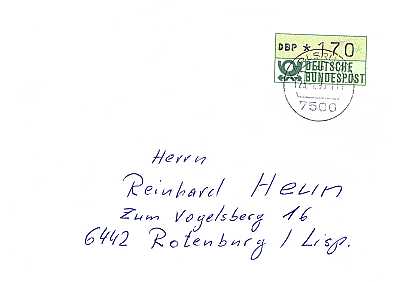 DBP * 170
DEUTSCHE
BUNDESPOST
7500
Herrn
Reinhard Heun
Zum Vogelsberg 16
6442 Rotenburg / Lisp.